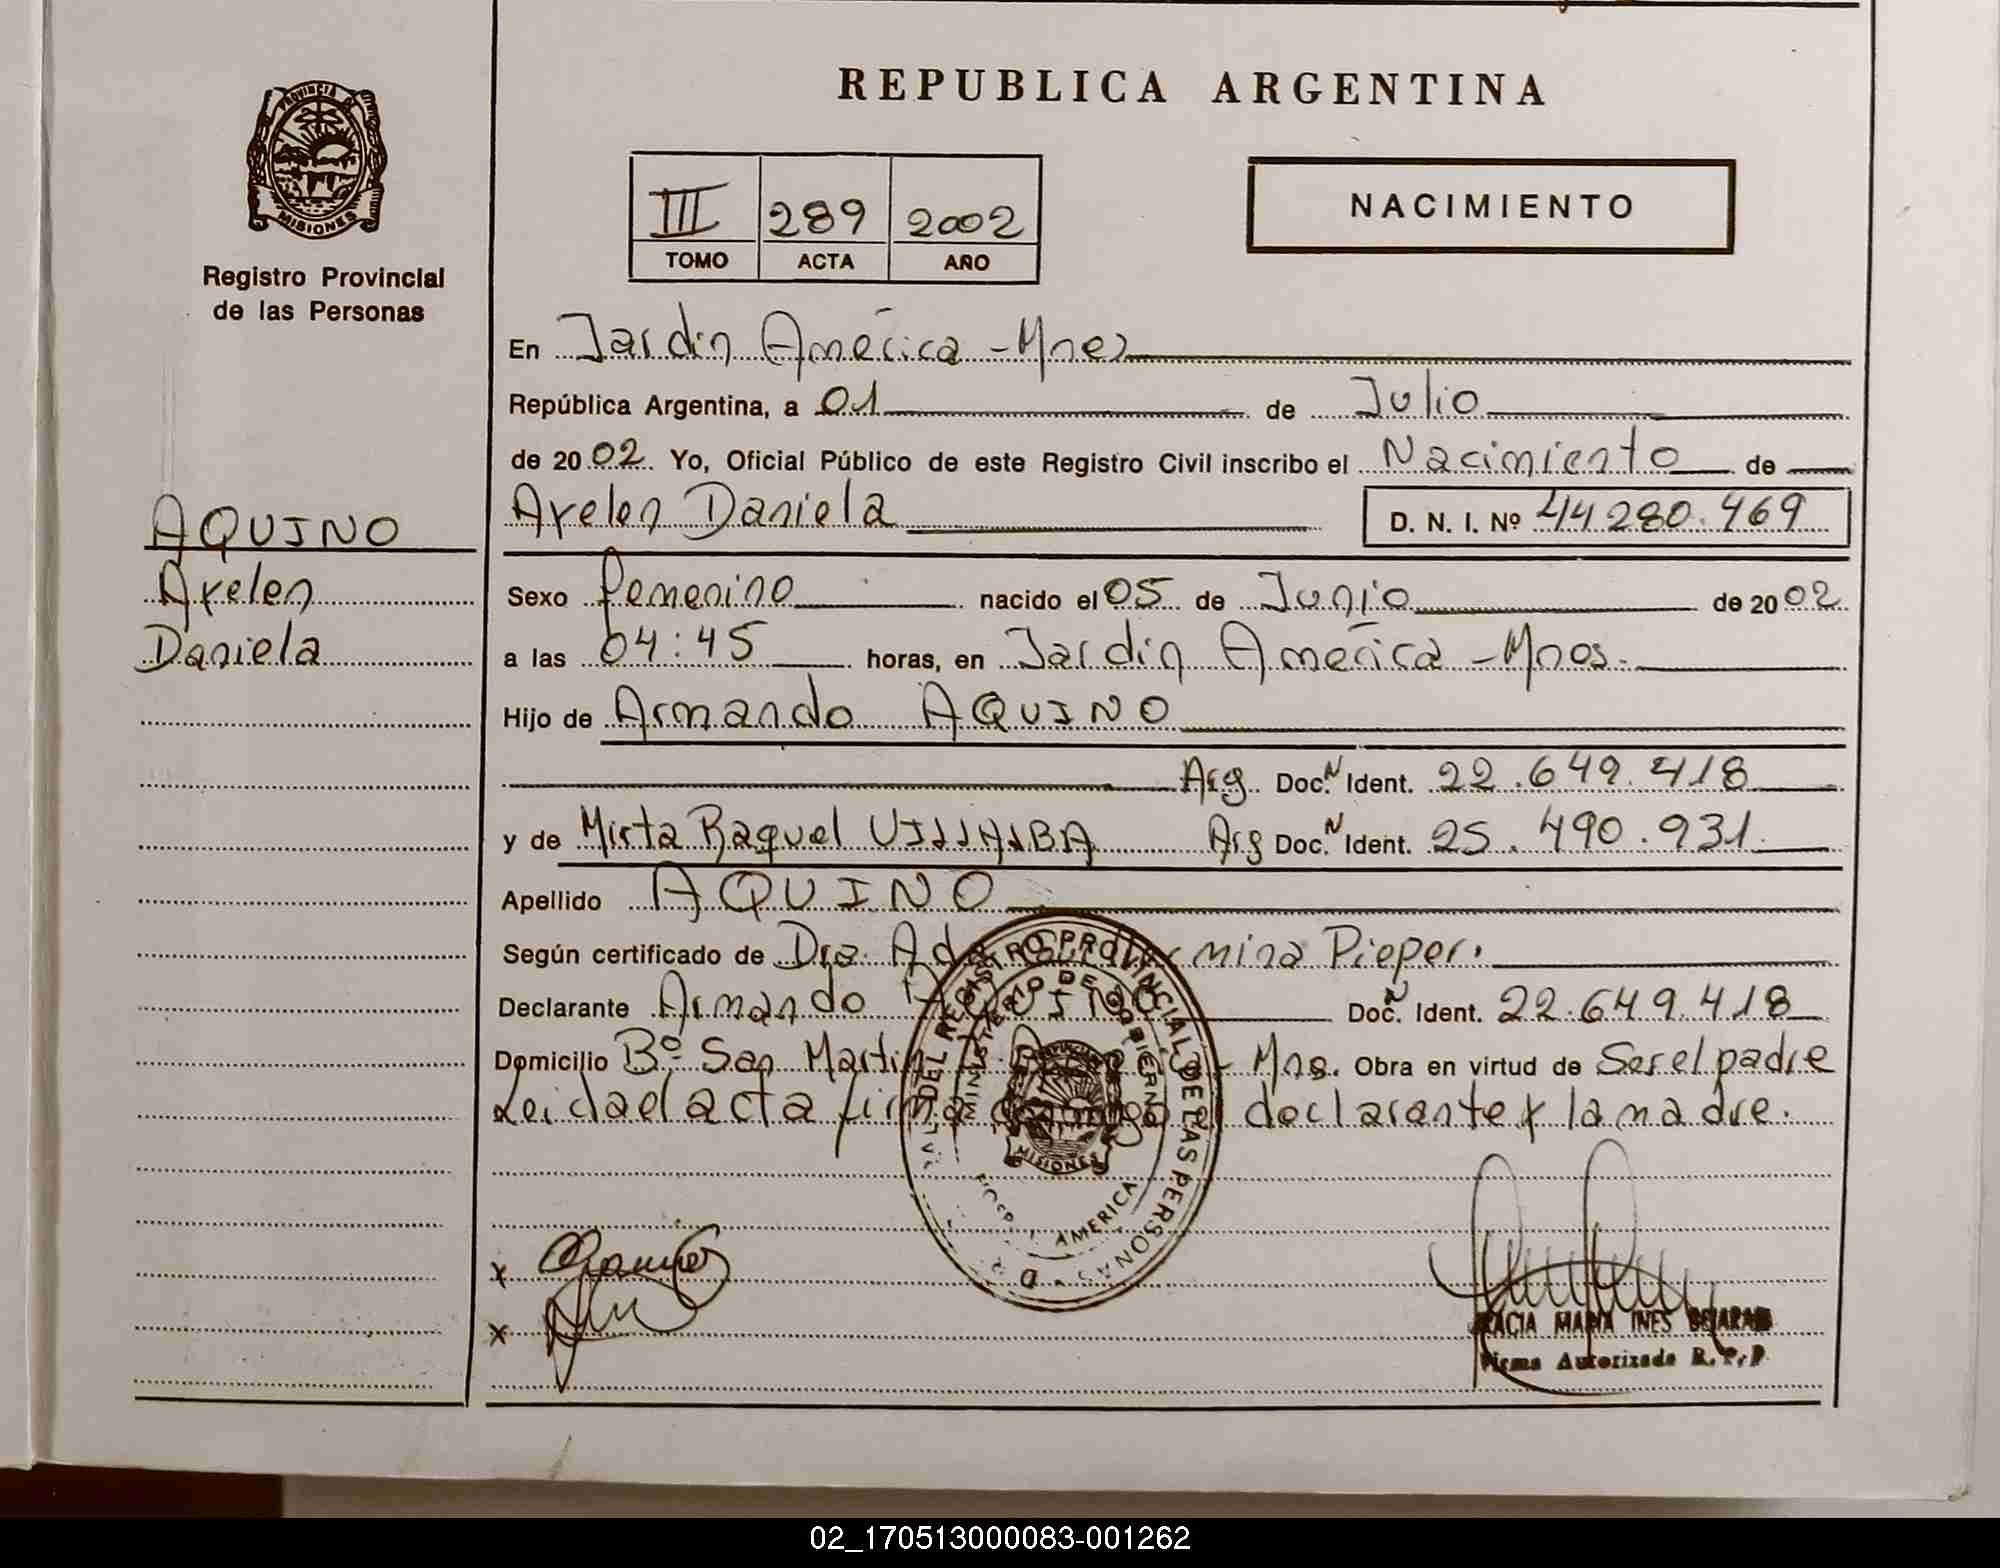 REPUBLICA ARGENTINA
PROVINCIA DE
MISIONES
Registro Provincial
de las Personas
III 289 2002
TOMO ACTA AÑO
NACIMIENTO
En Jardín América - Mnes
República Argentina, a 01 de Julio
de 2002. Yo, Oficial Público de este Registro Civil inscribo el Nacimiento de
AQUINO
Axelen
Daniela
Axelen Daniela D. N. I. Nº 44280.469
Sexo femenino nacido el 05 de Junio de 2002
a las 04:45 horas, en Jardín América - Mnes.
Hijo de Armando AQUINO
Arg. Doc. N Ident. 22.649.418
y de Mirta Raquel VILLALBA Arg Doc. N Ident. 25.490.931.
Apellido AQUINO
Según certificado de Dra. mina Pieper.
Declarante Armando AQUINO Doc. N Ident. 22.649.418
Domicilio Bº San Martín Mns. Obra en virtud de Ser el padre
Leida el acta firma conmigo el declarante y la madre.
REGISTRO PROVINCIAL DE LAS PERSONAS
MINISTERIO DE GOBIERNO
MISIONES
AMERICA
x
x
MARIA INES BEJARANO
Firma Autorizada R. P. P.
02_170513000083-001262